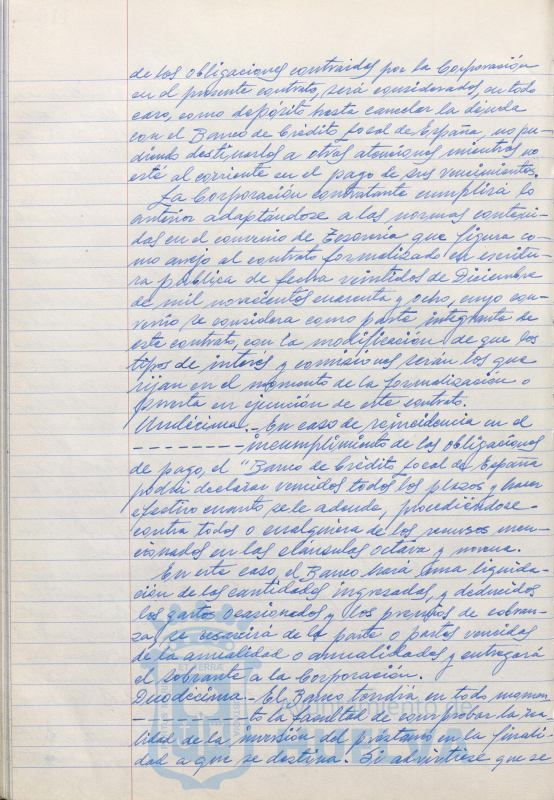 de las obligaciones contraidas por la Corporación
en el presente contrato, será considerados, en todo
caso, como depósito hasta cancelar la deuda
con el Banco de Crédito Local de España, no pu-
diendo destinarlos a otras atenciones mientras no
esté al corriente en el pago de sus vencimientos.
La Corporación contratante cumplirá lo
anterior adaptándose a las normas conteni-
das en el convenio de Tesorería que figura co-
mo anejo al contrato formalizado en escritu-
ra pública de fecha veintidos de Diciembre
de mil novecientos cuarenta y ocho, cuyo con-
venio se considera como parte integrante de
este contrato, con la modificación de que los
tipos de interés y comisiones serán los que
rijan en el momento de la formalización o
puesta en ejecución de este contrato.
Undécima.- En caso de reincidencia en el
- - - - - - - - incumplimiento de las obligaciones
de pago, el "Banco de Crédito Local de España
podrá declarar vencidos todos los plazos y hacer
efectivo cuanto se le adeude, procediéndose
contra todos o cualquiera de los recursos men-
cionados en las cláusulas octava y novena.
En este caso, el Banco hará una liquida-
ción de las cantidades ingresadas y deducidos
los gastos ocasionados y los premios de cobran-
za, se resarcirá de la parte o partes vencidas
de la anualidad o anualidades y entregará
el sobrante a la Corporación.
Duodécima.- El Banco tendrá en todo momen-
- - - - - - - - to la facultad de comprobar la rea-
lidad de la inversión del préstamo en la finali-
dad a que se destina. Si advirtiese que se
Ayuntamiento de
HUELVA